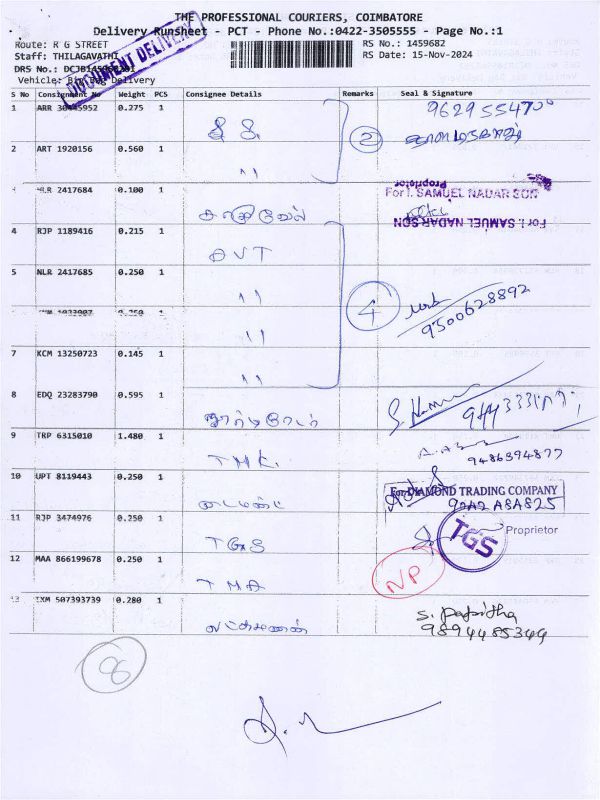 THE PROFESSIONAL COURIERS, COIMBATORE
Delivery Runsheet - PCT - Phone No.:0422-3505555 - Page No.:1
Route: R G STREET
RS No.: 1459682
Staff: THILAGAVATHI
RS Date: 15-Nov-2024
DRS No.:
DOCUMENT DELIVERY
Vehicle: Big Bag Delivery
S No Consignment No Weight PCS Consignee Details Remarks Seal & Signature
1 ARR 30445952 0.275 1
2
2 ART 1920156 0.560 1 "
NLR 2417684 0.100 1
Proprietor
For I. SAMUEL NADAR SON
For I. SAMUEL NADAR SON
4 RJP 1189416 0.215 1 AVT
5 NLR 2417685 0.250 1 "
4
9500628892
0.250 1 "
7 KCM 13250723 0.145 1 "
8 EDQ 23283790 0.595 1
9 TRP 6315010 1.480 1 TMK.
9486394877
10 UPT 8119443 0.250 1
For DIAMOND TRADING COMPANY
11 RJP 3474976 0.250 1 TGS
TGS
Proprietor
12 MAA 866199678 0.250 1 TMA NP
13 IXM 507393739 0.280 1
S. Pabitha
9894485344